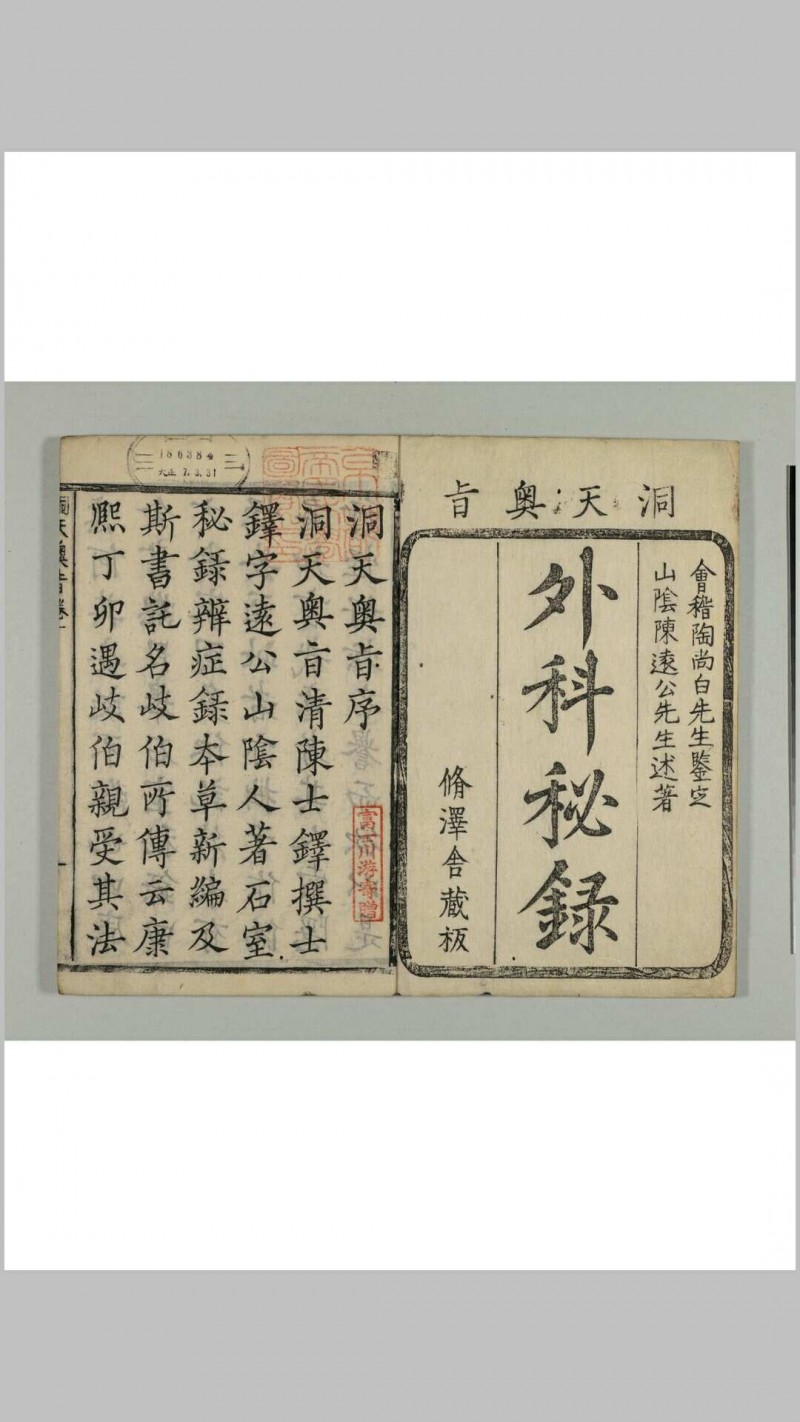 洞天奥旨
會稽陶尚白先生鑒定
山陰陳遠公先生述著
外科秘録
脩澤舎蔵板
洞天奥旨序
洞天奥旨清陳士鐸撰士
鐸字遠公山陰人著石室
秘録辨症録本草新編及
斯書託名岐伯所傳云康
熈丁卯遇岐伯親受其法
富士川游寄贈
186384
大正 7.3.31